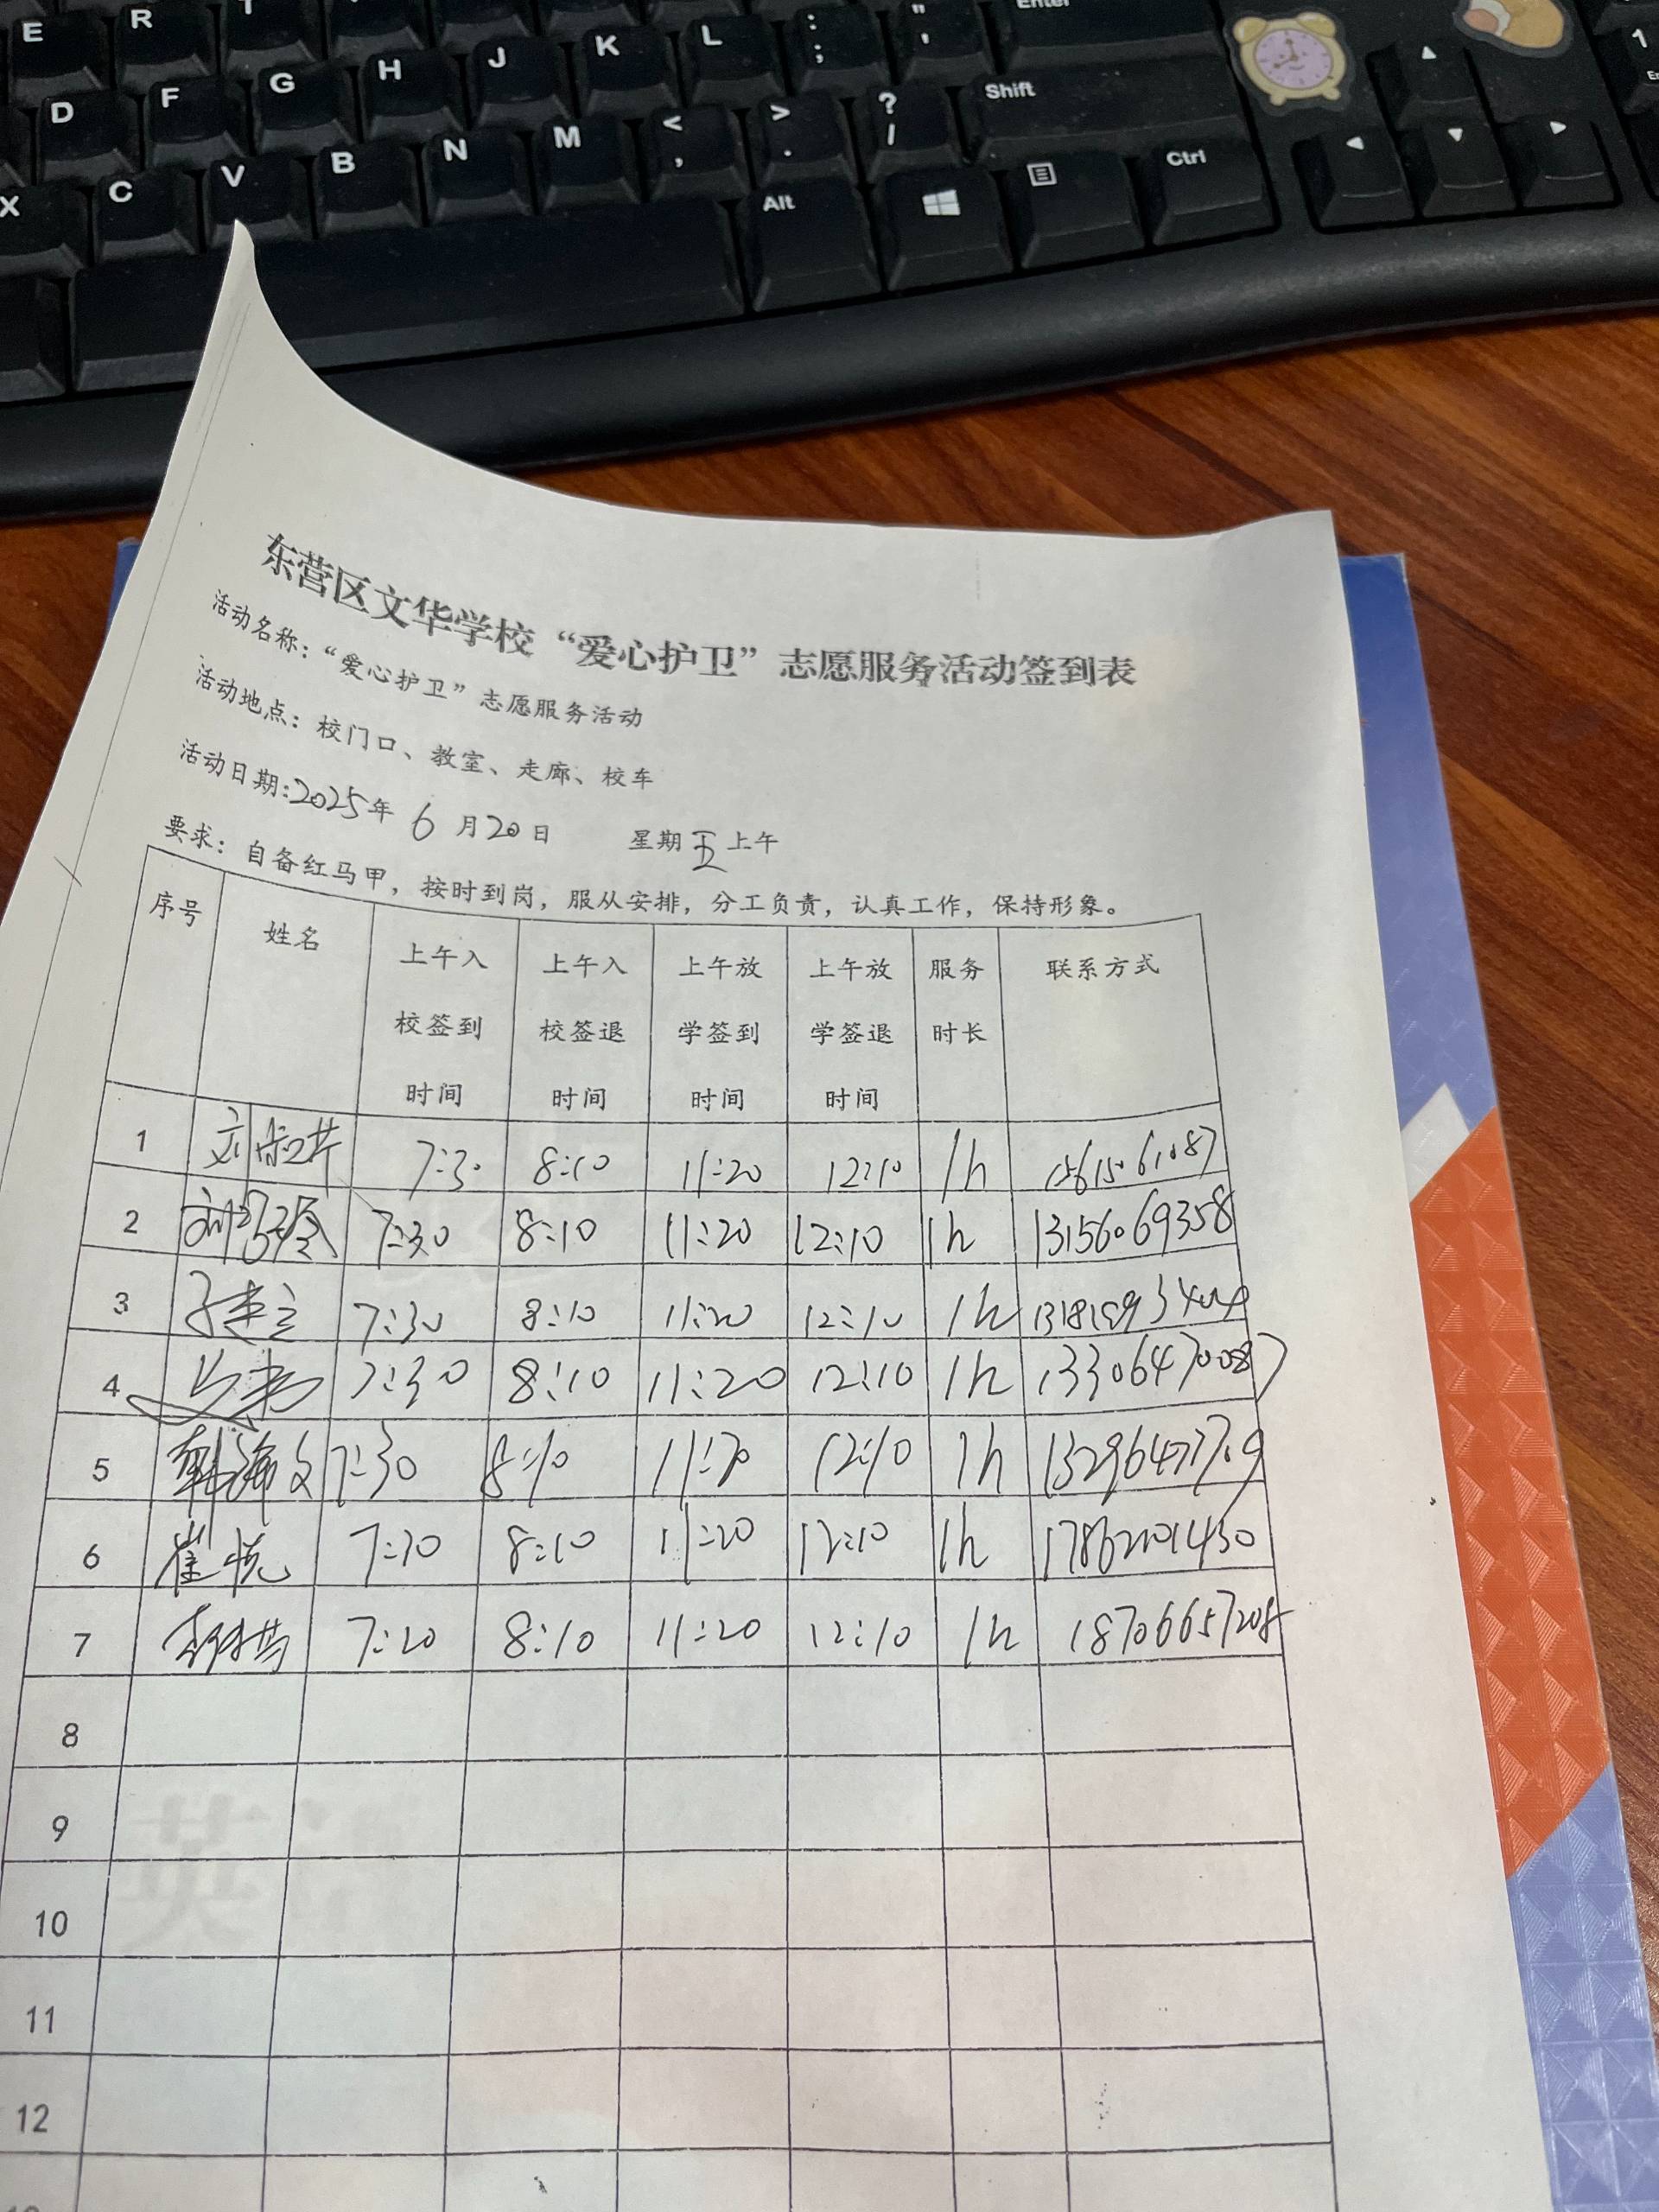 E R T
D F G H J K L : ; " ' Enter
X C V B N M < , > . ? / Shift
Alt Ctrl
1
东营区文华学校“爱心护卫”志愿服务活动签到表
活动名称：“爱心护卫”志愿服务活动
活动地点：校门口、教室、走廊、校车
活动日期:2025年 6 月20日 星期五上午
要求：自备红马甲，按时到岗，服从安排，分工负责，认真工作，保持形象。
序号 姓名 上午入校签到时间 上午入校签退时间 上午放学签到时间 上午放学签退时间 服务时长 联系方式
1 7:30 8:10 11:20 12:10 1h
2 7:30 8:10 11:20 12:10 1h 13156069358
3 7:30 8:10 11:20 12:10 1h
4 7:30 8:10 11:20 12:10 1h 13306470087
5 韩海文 7:30 8:10 11:20 12:10 1h
6 崔悦 7:30 8:10 11:20 12:10 1h
7 7:20 8:10 11:20 12:10 1h 18706657208
8
9
10
11
12